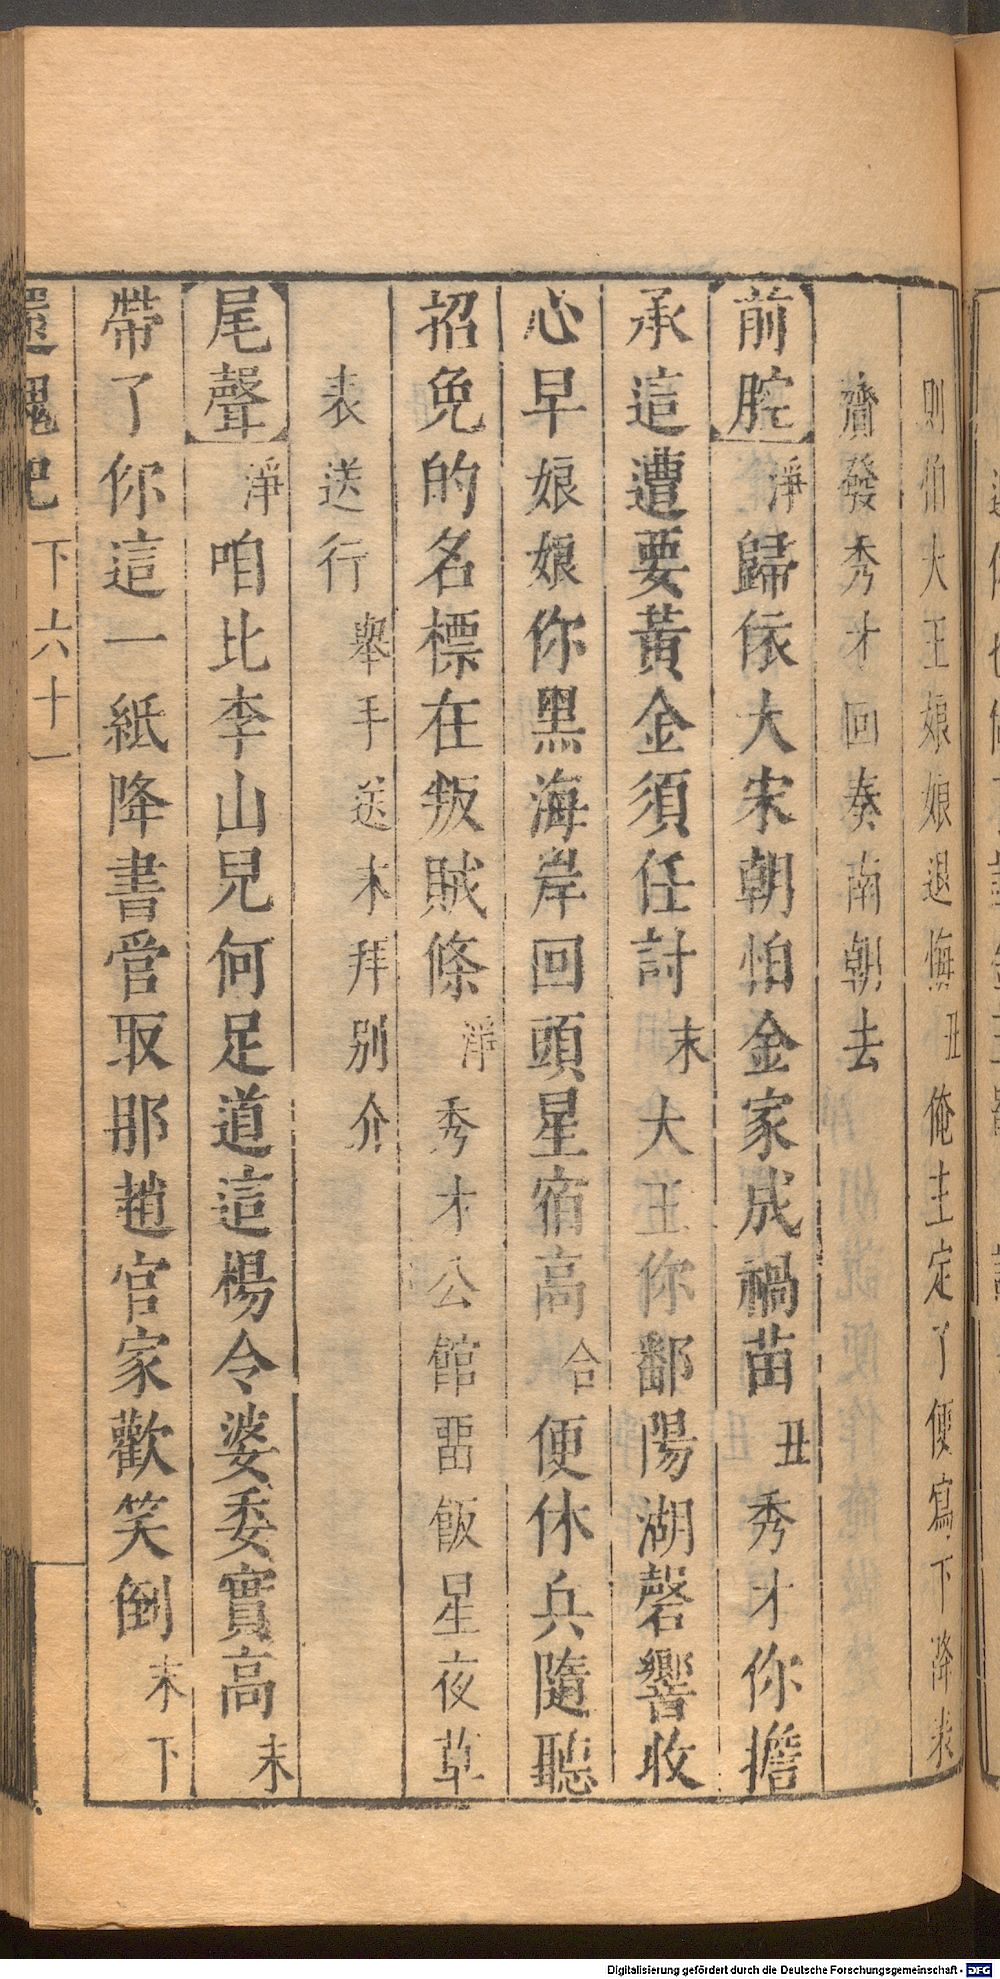 則伯大王娘娘退悔丑俺主定了便寫下降表
齎發秀才回奏南朝去
前腔淨歸依大宋朝怕金家成禍苗丑秀才你擔
承這遭要黃金須任討末大王你鄱陽湖磬響收
心早娘娘你黑海岸回頭星宿高合便休兵隨聽
招免的名標在叛賊條淨秀才公館留飯星夜草
表送行舉手送末拜別介
尾聲淨咱比李山兒何足道這楊令婆委實高末
帶了你這一紙降書管取那趙官家歡笑倒末下
還魂記 下六十一
Digitalisierung gefördert durch die Deutsche Forschungsgemeinschaft - DFG